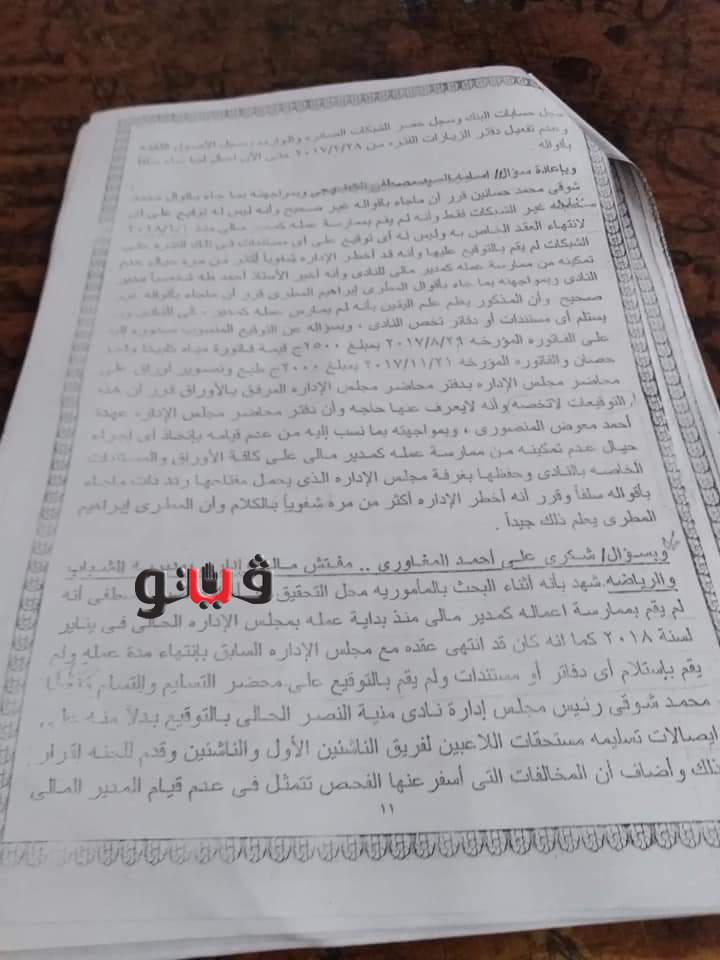 سجل حسابات البنك وسجل حصر الشيكات الصادره والوارده وسجل الأصول الثابته
وعدم تفعيل دفتر الزيارات الفتره من ٢٠١٧/٢/٢٨ حتى الآن
بأقواله
وبإعادة سؤال/ اسامه السيد مصطفى وبمواجهته بما جاء بأقوال محمد
شوقى محمد حسانين قرر أن ماجاء بأقواله غير صحيح وأنه ليس له توقيع على أى
غير الشيكات فقط وأنه لم يقم بممارسة عمله كمدير مالى منذ ٢٠١٨/١/١
لانتهاء العقد الخاص به وليس له أى توقيع على أى مستندات فى تلك الفتره على
الشيكات لم يقم بالتوقيع عليها وأنه قد أخطر الإداره شفوياً أكثر من مره حيال عدم
تمكينه من ممارسة عمله كمدير مالى للنادى وأنه أخبر الأستاذ أحمد طه شخصياً مدير
النادى وبمواجهته بما جاء بأقوال المطرى إبراهيم المطرى قرر أن ماجاء بأقواله غير
صحيح وأن المذكور يعلم علم اليقين بأنه لم يمارس عمله كمدير مالى للنادى ولم
يستلم أى مستندات أو دفاتر تخص النادى ، وبسؤاله عن التوقيع المنسوب صدوره إليه
على الفاتوره المؤرخه ٢٠١٧/٨/٢٩ بمبلغ ٢٥٠٠ج قيمة فاتورة مياه
حصنان والفاتوره المؤرخه ٢٠١٧/١١/٢١ بمبلغ ٢٠٠٠ج طبع وتصوير أوراق على
محاضر مجلس الإداره بدفتر محاضر مجلس الإداره المرفق بالأوراق قرر أن هذه
التوقيعات لاتخصه وأنه لايعرف عنها حاجه وأن دفتر محاضر مجلس الإداره عهدة
أحمد معوض المنصورى ، وبمواجهته بما نسب إليه من عدم قيامه بإتخاذ أى إجراء
حيال عدم تمكينه من ممارسة عمله كمدير مالى على كافة الأوراق والمستندات
الخاصه بالنادى وحفظها بغرفة مجلس الإداره الذى يحمل مفتاحها ردد ذات ماجاء
بأقواله سلفاً وقرر أنه أخطر الإداره أكثر من مره شفوياً بالكلام وأن المطرى إبراهيم
المطرى يعلم ذلك جيداً .
وبسؤال/ شكرى على أحمد المغاورى .. مفتش مالى الشباب
والرياضه شهد بأنه أثناء البحث بالمأموريه محل التحقيق مصطفى أنه
ڤيتو
لم يقم بممارسة اعماله كمدير مالى منذ بداية عمله بمجلس الإداره الحالى فى يناير
لسنة ٢٠١٨ كما انه كان قد انتهى عقده مع مجلس الإداره السابق بإنتهاء مدة عمله ولم
يقم بإستلام أى دفاتر أو مستندات ولم يقم بالتوقيع على محضر التسليم والتسلم
محمد شوقى رئيس مجلس إدارة نادى منية النصر الحالى بالتوقيع بدلاً منه على
ايصالات تسليمه مستحقات اللاعبين لفريق الناشئين الأول والناشئين وقدم للجنه اقرار
ذلك وأضاف أن المخالفات التى أسفر عنها الفحص تتمثل فى عدم قيام المدير المالى
١١